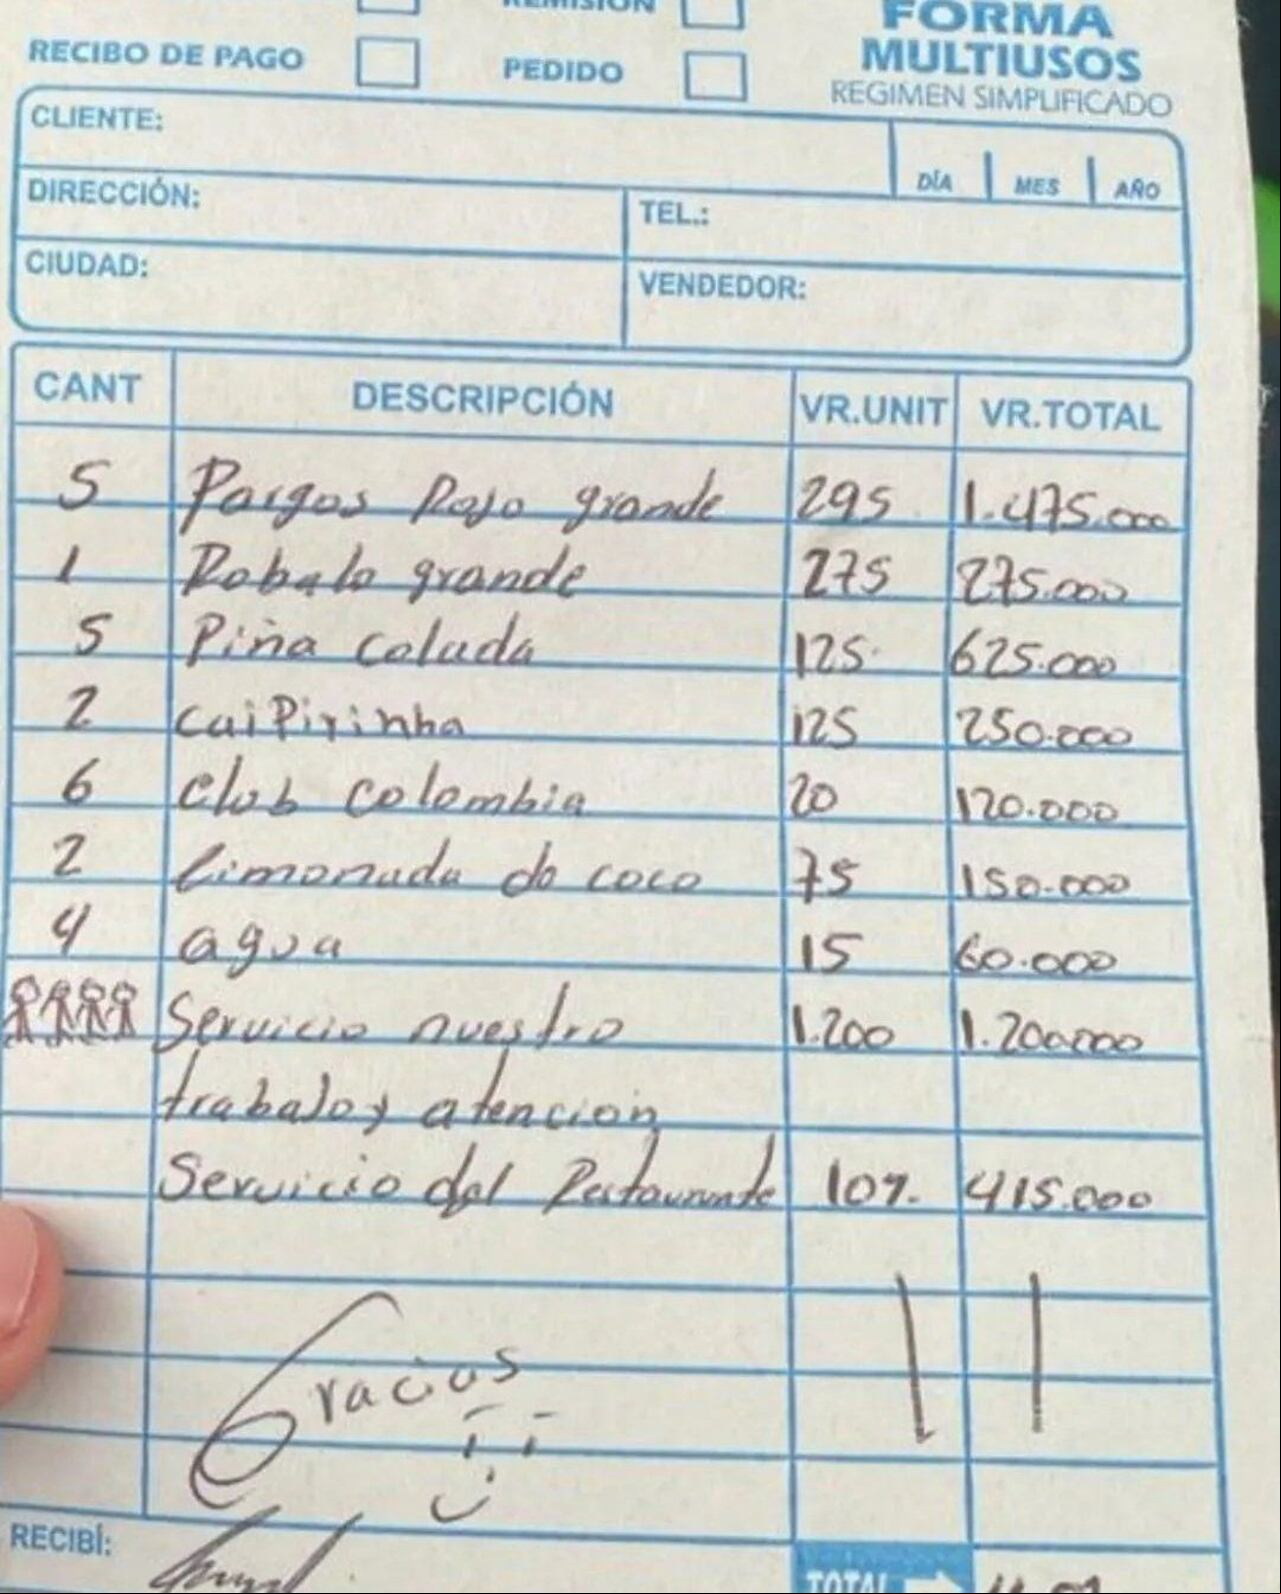 REMISIÓN
FORMA
MULTIUSOS
RECIBO DE PAGO PEDIDO
REGIMEN SIMPLIFICADO
CLIENTE:
DÍA MES AÑO
DIRECCIÓN: TEL.:
CIUDAD: VENDEDOR:
CANT DESCRIPCIÓN VR.UNIT VR.TOTAL
5 Pargos Rojo grande 295 1.475.000
1 Robalo grande 275 275.000
5 Piña Colada 125 625.000
2 CaiPirinha 125 250.000
6 Club Colombia 20 120.000
2 limonada de coco 75 150.000
4 agua 15 60.000
Servicio nuestro 1.200 1.200.000
trabajo y atencion
Servicio del Restaurante 10% 415.000
Gracias
RECIBÍ: TOTAL